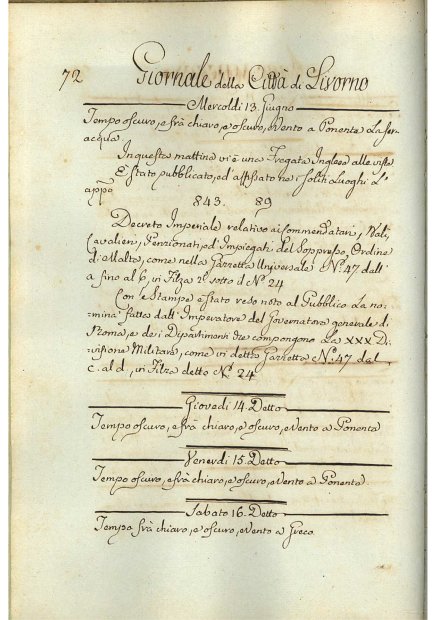 72 Giornale della Città di Livorno
Mercoldi 13. Giugno
Tempo oscuro, e frà chiaro, e oscuro, e Vento a Ponente La ser-
acqua
In questa mattina vi è una Fregata Inglese alle viste
E' Stato pubblicato, ed affissato ne i soliti Luoghi L'
appo
843. 89
Decreto Imperiale relativo ai Commendatari, Bali,
Cavalieri, Pensionati, ed Impiegati del Soppresso, Ordine
di Malta, come nella Gazzetta Universale N.º 47 dall'
a fino al 6, in Filza 2.ª sotto d N.º 24
Con le Stampe è Stato reso noto al Pubblico La no-
mina fattas dall'Imperatore del Governatore generale di
Roma, e de i Dipartimenti che compongono La XXX Di-
visione Militare, come in detta Gazzetta N.º 47 dal
c. al d, in Filza detto N.º 24
Giovedi 14. Detto
Tempo oscuro, e frà chiaro, e oscuro, e Vento a Ponente
Venerdi 15. Detto
Tempo oscuro, e frà chiaro, e oscuro, e Vento a Ponente
Sabato 16. Detto
Tempo frà chiaro, e oscuro, e Vento a Greco